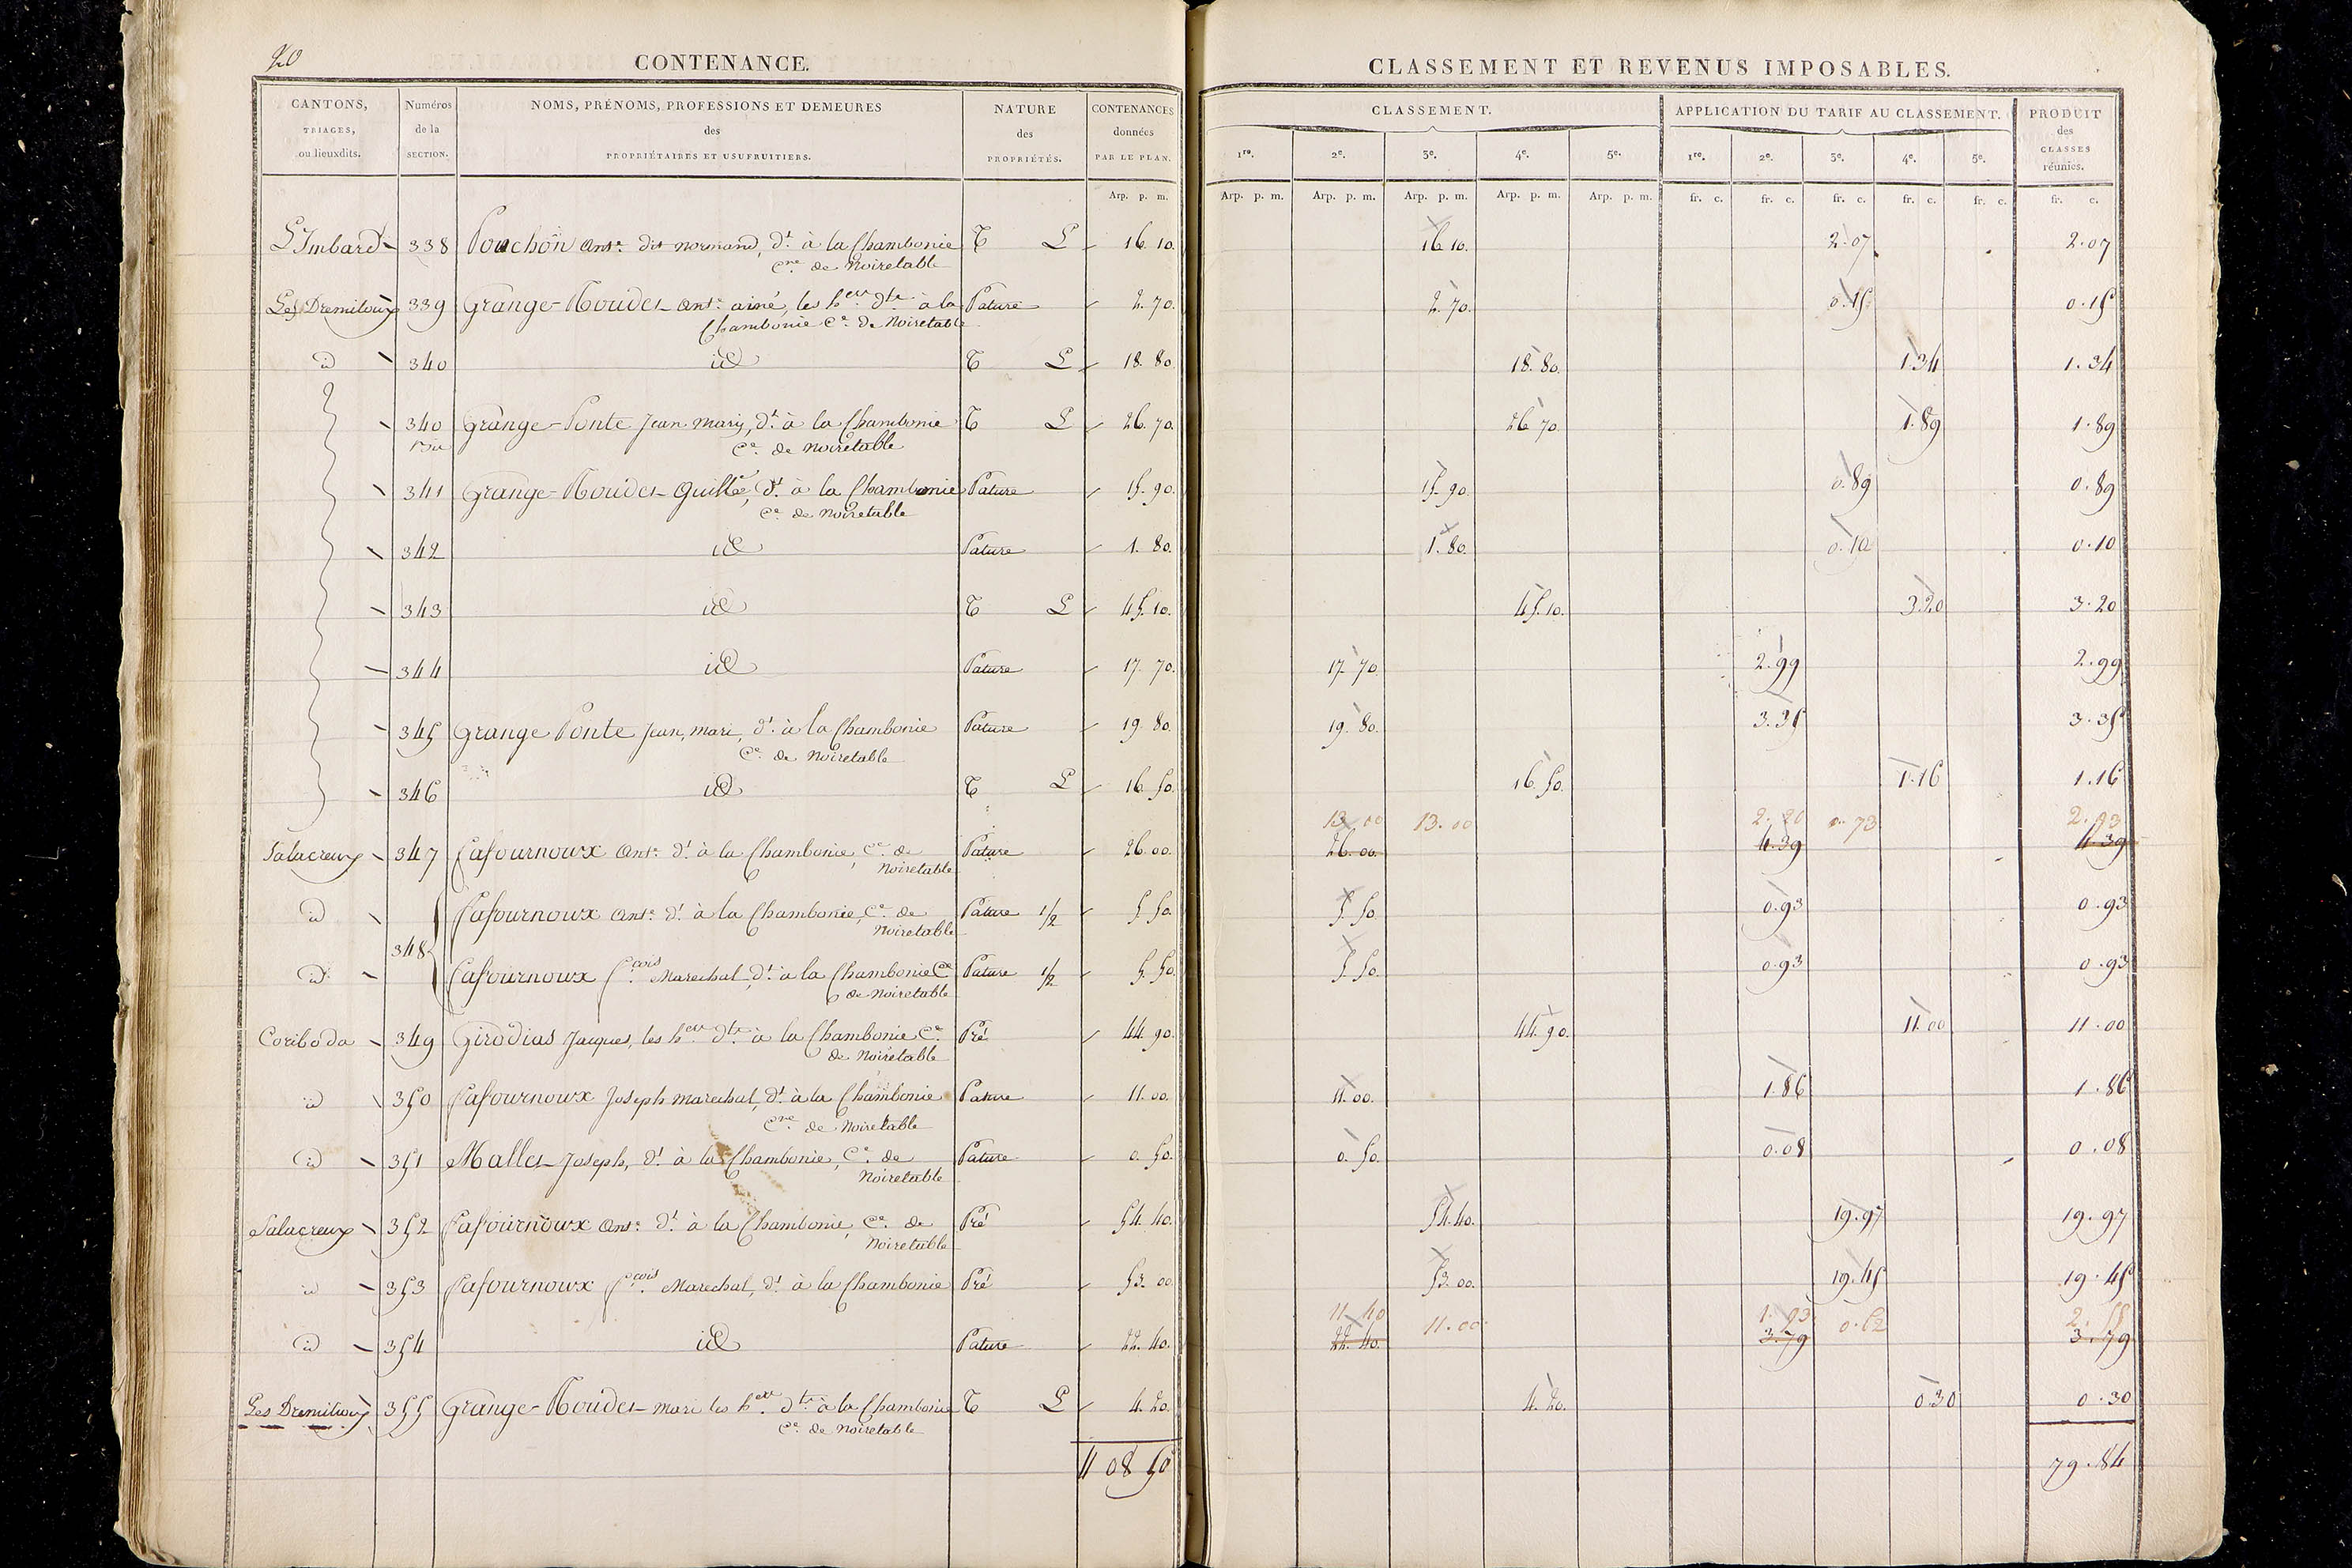 20
CONTENANCE.
CLASSEMENT ET REVENUS IMPOSABLES.
CANTONS, TRIAGES, ou lieuxdits.
Numéros de la SECTION.
NOMS, PRÉNOMS, PROFESSIONS ET DEMEURES des PROPRIÉTAIRES ET USUFRUITIERS.
NATURE des PROPRIÉTÉS.
CONTENANCES données PAR LE PLAN.
CLASSEMENT.
APPLICATION DU TARIF AU CLASSEMENT.
PRODUIT des CLASSES réunies.
1re. 2e. 3e. 4e. 5e. 1re. 2e. 3e. 4e. 5e.
Arp. p. m. Arp. p. m. Arp. p. m. Arp. p. m. Arp. p. m. Arp. p. m. fr. c. fr. c. fr. c. fr. c. fr. c. fr. c.
L'Imbard 338 Pouchon ant.e dit normand, d.t à la Chambonie T L 16. 10. 16 10. 2.07 2.07
C.ne de Noiretable
Les Dremiloux 339 Grange-Roudet ant.e ainé, les h.ers d.ts à la Pature 2. 70. 2. 70. 0.15 0.15
Chambonie C.e de Noiretable
id 340 id T L 18. 80. 18. 80. 1.34 1.34
340 Grange-Ponte Jean Marij, d.t à la Chambonie T L 26. 70. 26 70. 1.89 1.89
bis C.e de Noiretable
341 Grange-Roudet Guill.e, d.t à la Chambonie Pature 15. 90. 15. 90. 0.89 0.89
C.e de Noiretable
342 id Pature 1. 80. 1. 80. 0.10 0.10
343 id T L 45. 10. 45. 10. 3.20 3.20
344 id Pature 17. 70. 17. 70. 2.99 2.99
345 Grange Ponte Jean, Marie, d.t à la Chambonie Pature 19. 80. 19. 80. 3.35 3.35
C.e de Noiretable
346 id T L 16. 50. 16. 50. 1.16 1.16
13 00 13. 00 2. 20 0. 73 2. 93
Salacreux 347 Lafournoux ant.e d.t à la Chambonie, C.e de Pature 26. 00. 26. 00. 4.39 4.39
Noiretable
id Lafournoux ant.e d.t à la Chambonie, C.e de Pature 1/2 5. 50. 5. 50. 0.93 0.93
Noiretable
348
id Lafournoux f.cois Marechal, d.t à la Chambonie C.e Pature 1/2 5. 50. 5. 50. 0.93 0.93
de Noiretable
Coriboda 349 Girodias Jacques, les h.ers d.ts à la Chambonie C.e Pré 44. 90. 44. 90. 11.00 11.00
de Noiretable
id 350 Lafournoux Joseph Marechal, d.t à la Chambonie Pature 11. 00. 11. 00. 1.86 1.86
C.ne de Noiretable
id 351 Mallet Joseph, d.t à la Chambonie, C.e de Pature 0. 50. 0. 50. 0.08 0.08
Noiretable
Salacreux 352 Lafournoux ant.e d.t à la Chambonie, C.e de Pré 54. 40. 54. 40. 19.97 19.97
Noiretable
id 353 Lafournoux f.cois Marechal, d.t à la Chambonie Pré 53. 00. 53. 00. 19.45 19.45
11. 40 11. 00 1. 93 0. 62 2. 55
id 354 id Pature 22. 40. 22. 40. 3.79 3.79
Les Dremiloux 355 Grange-Roudet Marie les h.ers d.ts à la Chambonie T L 4. 20. 4. 20. 0.30 0.30
C.e de Noiretable
4 08 50 79.84